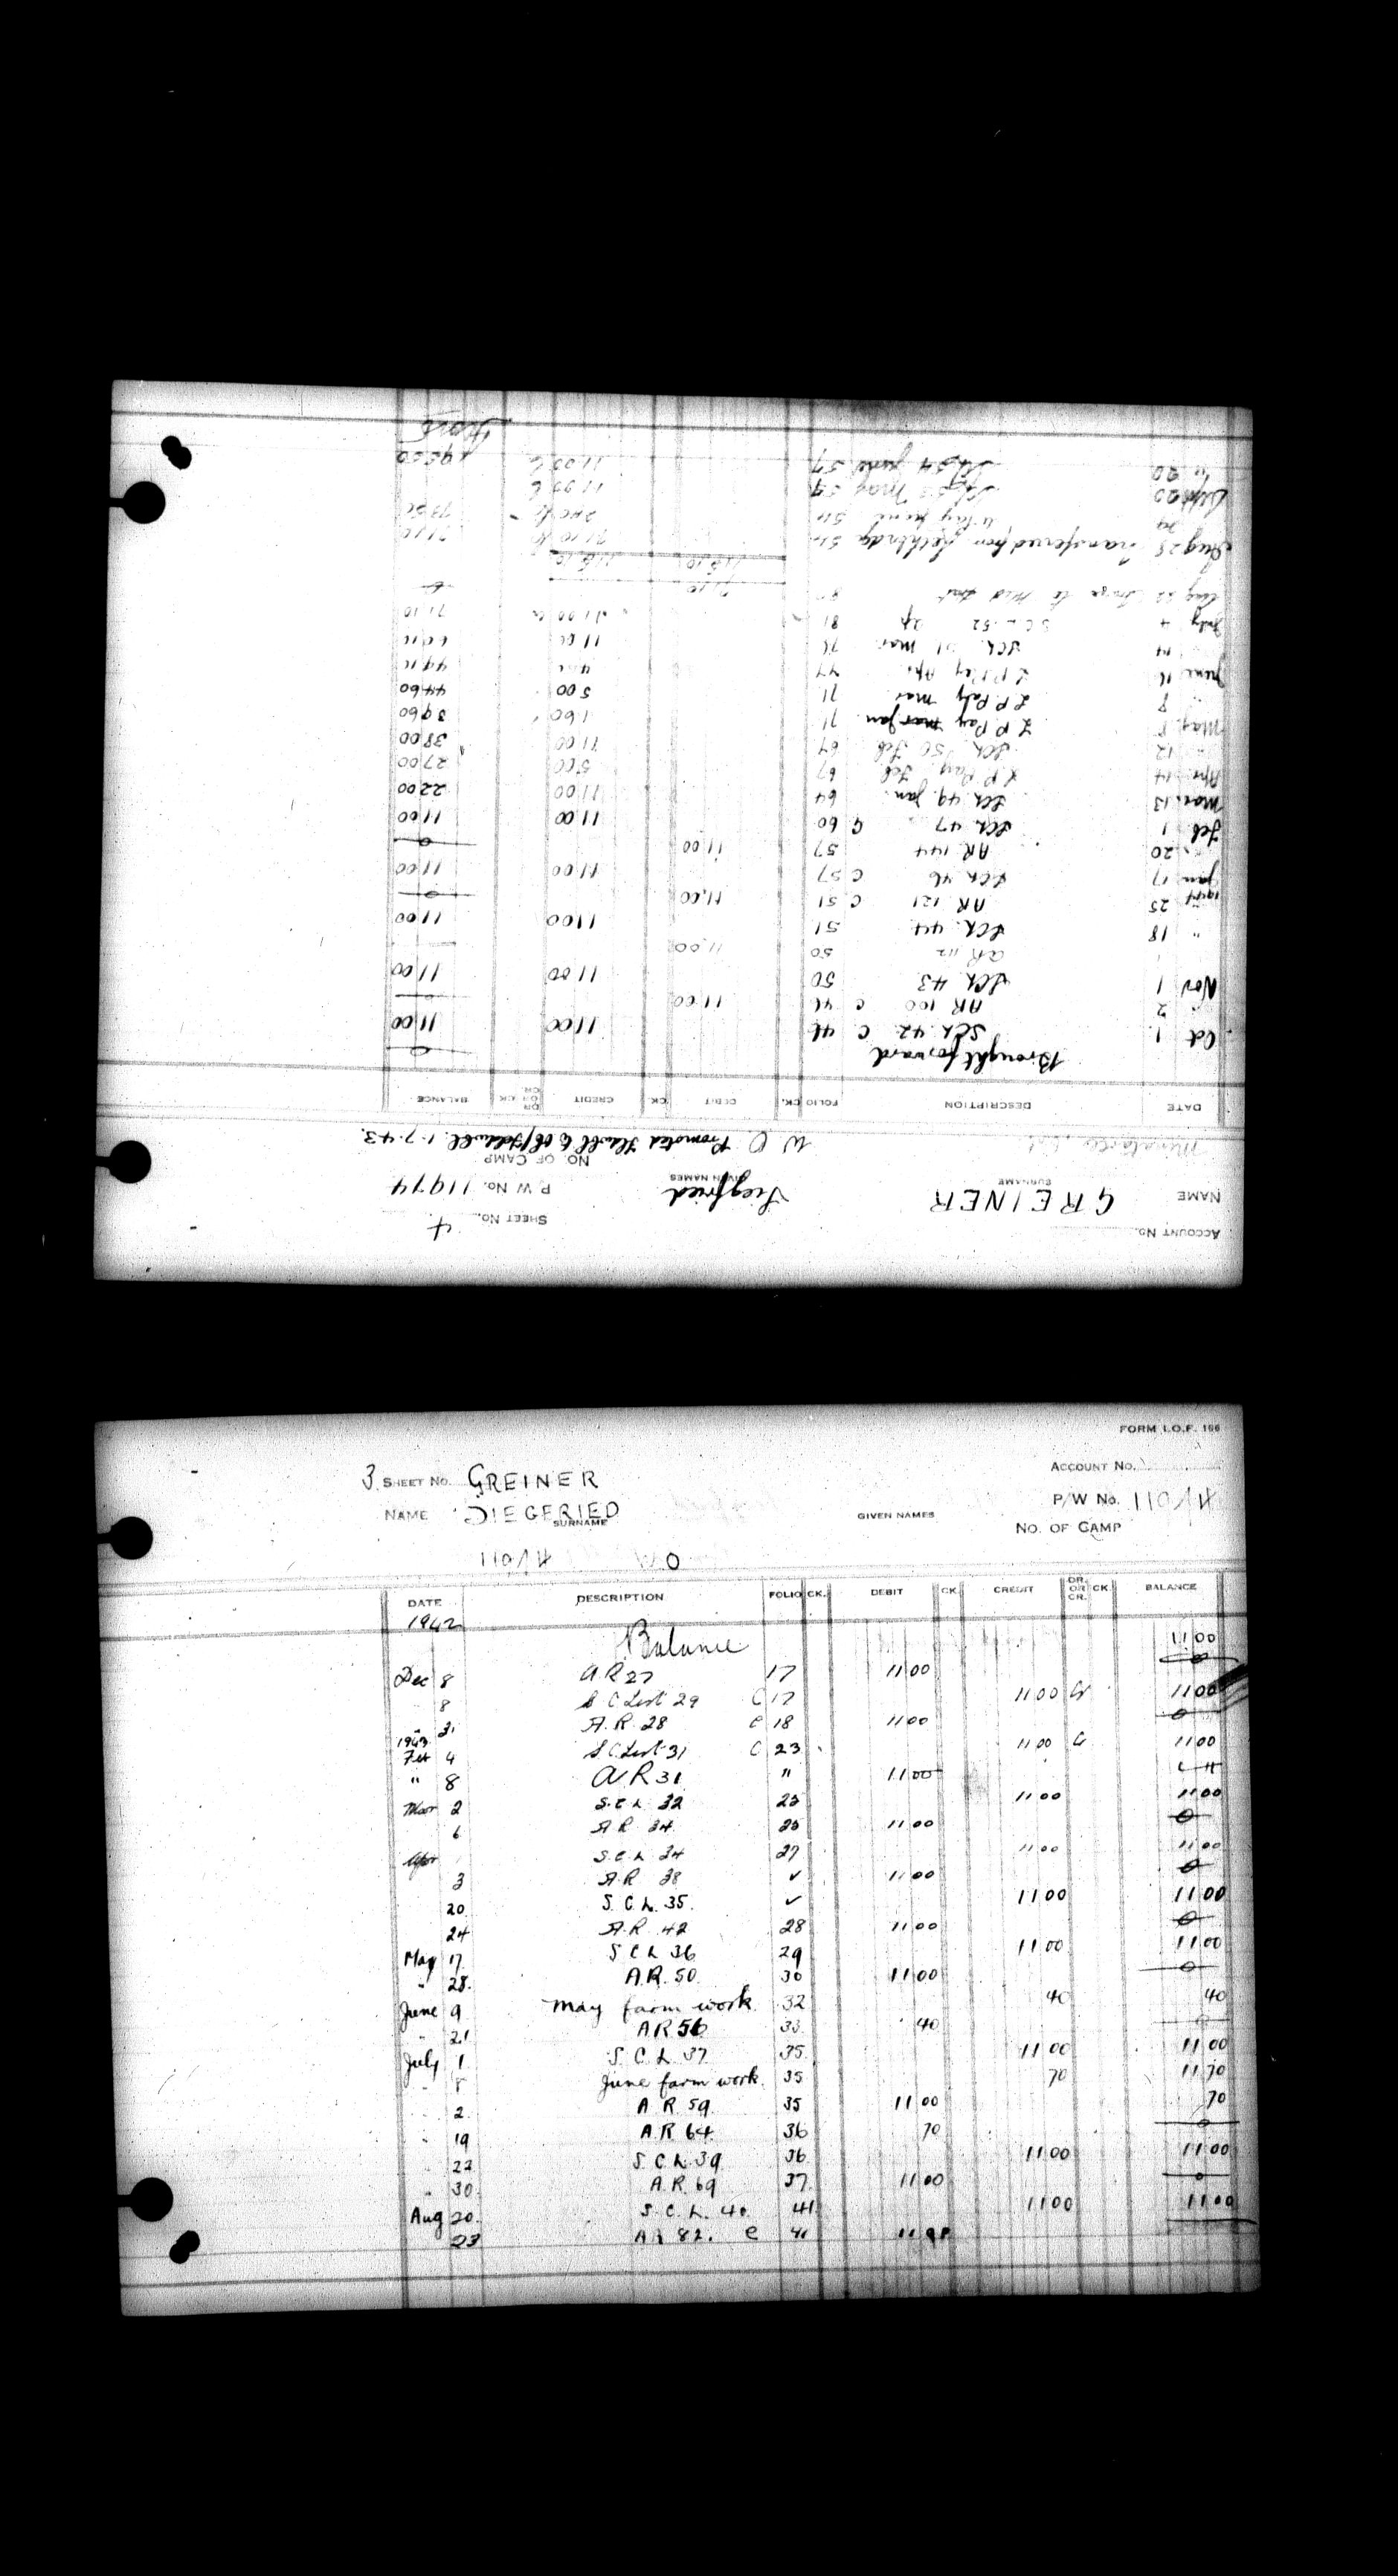 ACCOUNT No.
SHEET No. 4
NAME GREINER Siegfried P.W No. 11974
SURNAME GIVEN NAMES
NO. OF CAMP
W O Promoted 1.7.43.
DATE DESCRIPTION FOLIO CK. DEBIT CK. CREDIT DR. OR CR. CK. BALANCE
Brought forward 0
Oct 1 SCL 42 C 46 11 00 11 00
" 2 AR 100 C 46 11 00 0
Nov 1 SCL 43 50 11 00 11 00
AR 112 50 11 00
" 18 SCL 44 51 11 00 11 00
" 25 AR 121 C 51 11 00 0
1944
Jan 17 SCL 46 C 57 11 00 11 00
" 20 AR 144 57 11 00 0
Feb 1 SCL 47 C 60 11 00 11 00
Mar 13 SCL 49 Jan 64 11 00 22 00
Apr 14 L P Pay Feb 67 5 00 27 00
" 12 SCL 50 Feb 67 11 00 38 00
May 8 L P Pay mar Jan 71 1 60 39 60
" 8 L P Pay mar 71 5 00 44 60
June 16 L P Pay Apr 77
" 14 SCL 51 Mar 76 11 00
July 4 S C L 52 Ap 81 11 00 71 10
Aug 22 to Med Hat 71 10
118 10 118 10
Aug 28 Transferred from Lethbridge 54 71 10 71 10
Pay June 54 2 40 73 50
Sept 20 SCL 53 May 59 11 00
" 20 SCL 54 June 59 11 00 95 50
FORM I.O.F. 166
3 SHEET No. GREINER ACCOUNT No.
NAME SIEGFRIED P/W No. 11974
SURNAME GIVEN NAMES NO. OF CAMP
11974 W.O
DATE DESCRIPTION FOLIO CK. DEBIT CK. CREDIT DR. OR CR. CK. BALANCE
1942
Balance 11 00
Dec 8 A R 27 17 11 00 0
8 S C List 29 C 17 11 00 Cr 11 00
" 31 A. R. 28 C 18 11 00 0
1943
Feb 4 S C List 31 C 23 11 00 Cr 11 00
" 8 A R 31 " 11 00
Mar 2 S. C. L. 32 25 11 00 11 00
6 A R. 34 25 11 00 0
Apr S. C. L 34 27 11 00 11 00
3 A. R 38 ✓ 11 00 0
20 S. C. L. 35. ✓ 11 00 11 00
24 A. R. 42 28 11 00 0
May 17 S C L 36 29 11 00 11 00
" 28. A. R. 50 30 11 00 0
June 9 May farm work 32 40 40
" 21 A R 56 33 40 0
July 1 S. C. L. 37 35 11 00 11 00
" 8 June farm work. 35 70 11 70
" 2 A. R. 59 35 11 00 70
" 19 A. R. 64 36 70 0
" 22 S. C. L. 39 36 11 00 11 00
" 30 A. R. 69 37 11 00 0
Aug 20 S. C. L. 40 41 11 00 11 00
23 A R 82. C 41 11 00